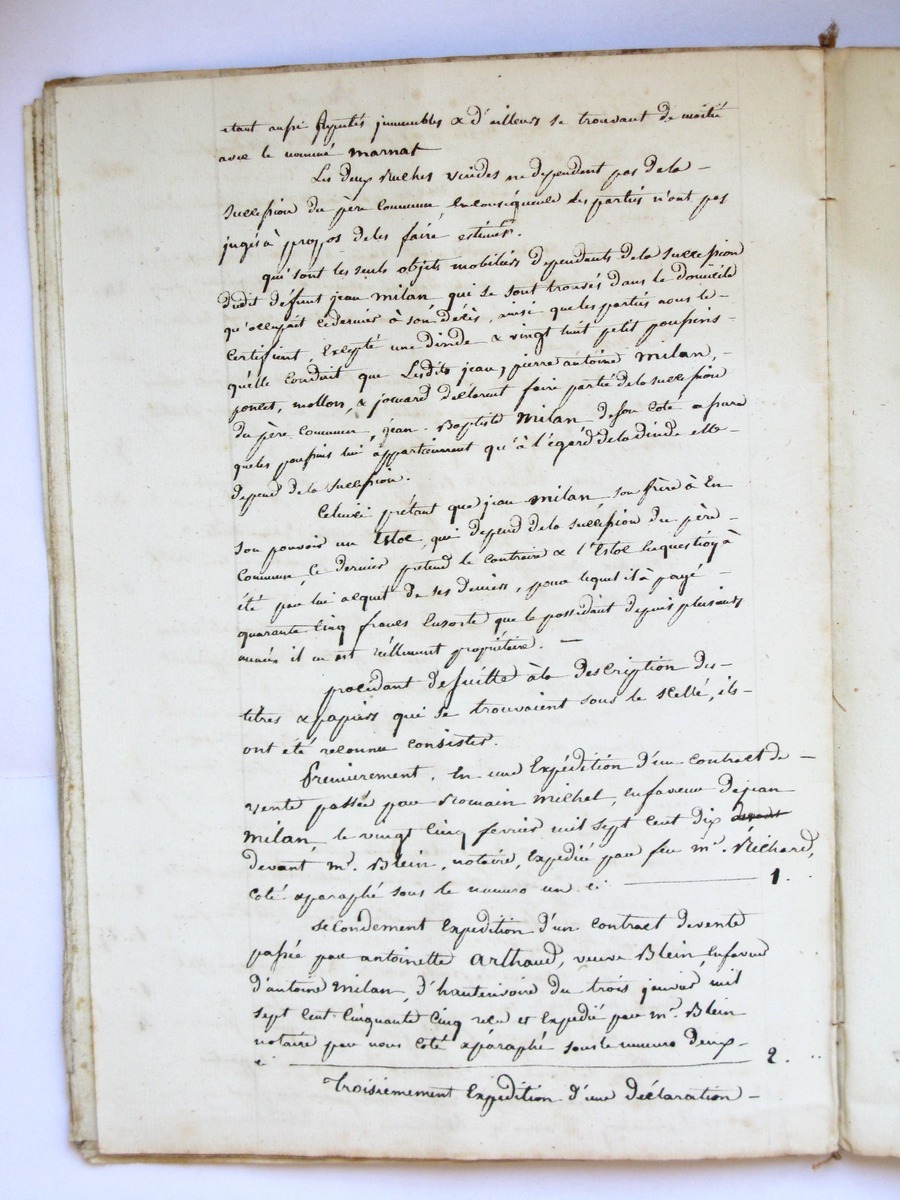 etant aussi Réputés immeubles & d'ailleurs se trouvant de moitié
avec le nommé marnat
Les deux Ruches vuides ne dependent pas de la -
succession du père commun En conséquence Les parties n'ont pas
jugés à propos de les faire estimer.
qui sont les seuls objets mobiliers dependents de la succession
dudit défunt jean milan qui se sont trouvés dans le domicile
qu'occupait ce dernier à son décès, ainsi que les parties nous le -
certifient, Excepté une dinde & vingt huit petit poussins -
qu'elle conduit que Lesdits jean, pierre antoine milan, -
poncet, mollon, & jouvard déclarent faire partie de la succession
du père commun, jean-Baptiste Milan de son coté assure
que les poussins lui appartiennent qu'à l'égard de la dinde elle -
depend de la succession.
Celuici prétant que jean milan son frère à En
son pouvoir un Estoc, qui depend de la succession du père -
commun, ce dernier prétend le contraire & l'Estoc En question à
été par lui acquit de ses deniers, pour lequel il à payé -
quarante cinq francs Ensorte que le possédant depuis plusieurs
années il en est réellement propriétaire. -
procédant de suitte à la description des -
titres & papiers qui se trouvaient sous le scellé, ils -
ont été reconnu consister.
Premierement, En une Expédition d'un contract de -
vente passée par Romain Michel, En faveur de jean
milan, le vingt cinq fevrier mil sept cent dix devant
devant mr. Blein, notaire, Expédiée par feu mr. Richard,
coté & paraphé sous le numero un ci 1.
Secondement Expédition d'un contract de vente
passée par antoinette Arthaud, veuve Blein, En faveur
d'antoine Milan, d'hauterivoire du trois janvier mil
sept cent cinquante cinq reçu et Expédié par mr. Blein
notaire par nous coté & paraphé sous le numero deux -
ci 2.
Troisiemement Expédition d'une déclaration -